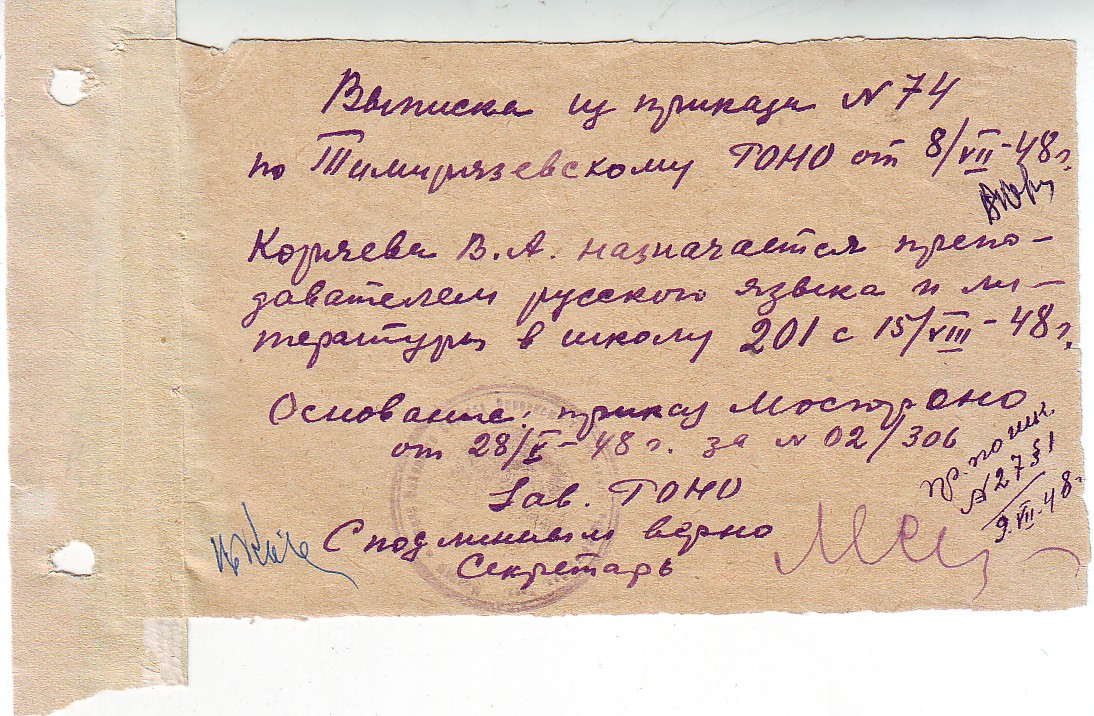 Выписка из приказа N 74
по Тимирязевскому ТОНО от 8/VII-48г.
Коряева В.А. назначается препо-
давателем русского языка и ли-
тературы в школу 201 с 15/VIII-48г.
Основание: приказ МосгорОНО
от 28/V-48г. за N 02/306
Зав. ТОНО
С подлинным верно
Секретарь
N 2731
9.VII-48г.